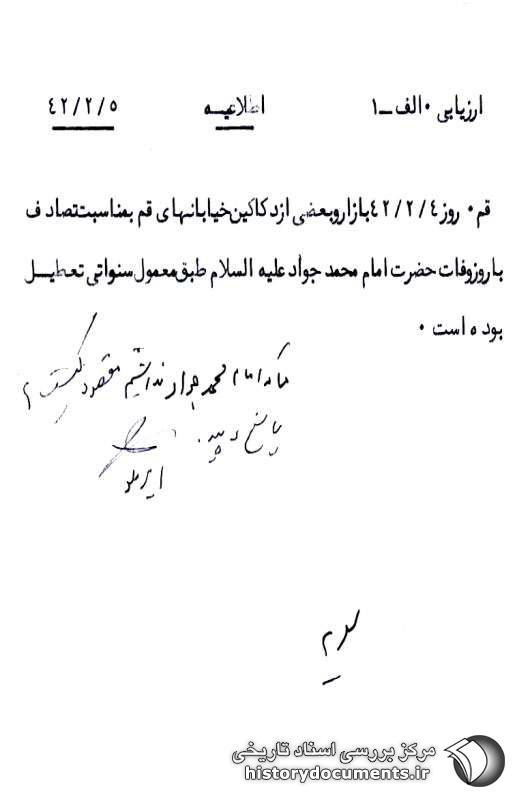 ارزیابی ۰ الف ــ ۱ اطلاعیــه ۴۲/۲/۵
قم ۰ روز ۴۲/۲/۴ بازار و بعضی از دکاکین خیابانهای قم بمناسبت تصادف
با روز وفات حضرت امام محمد جواد علیه السلام طبق معمول سنواتی تعطیــل
بوده است ۰
ما که امام محمد جواد نداشتیم مقصود کیست
پاسخ دهید.
مرکز بررسی اسناد تاریخی
historydocuments.ir